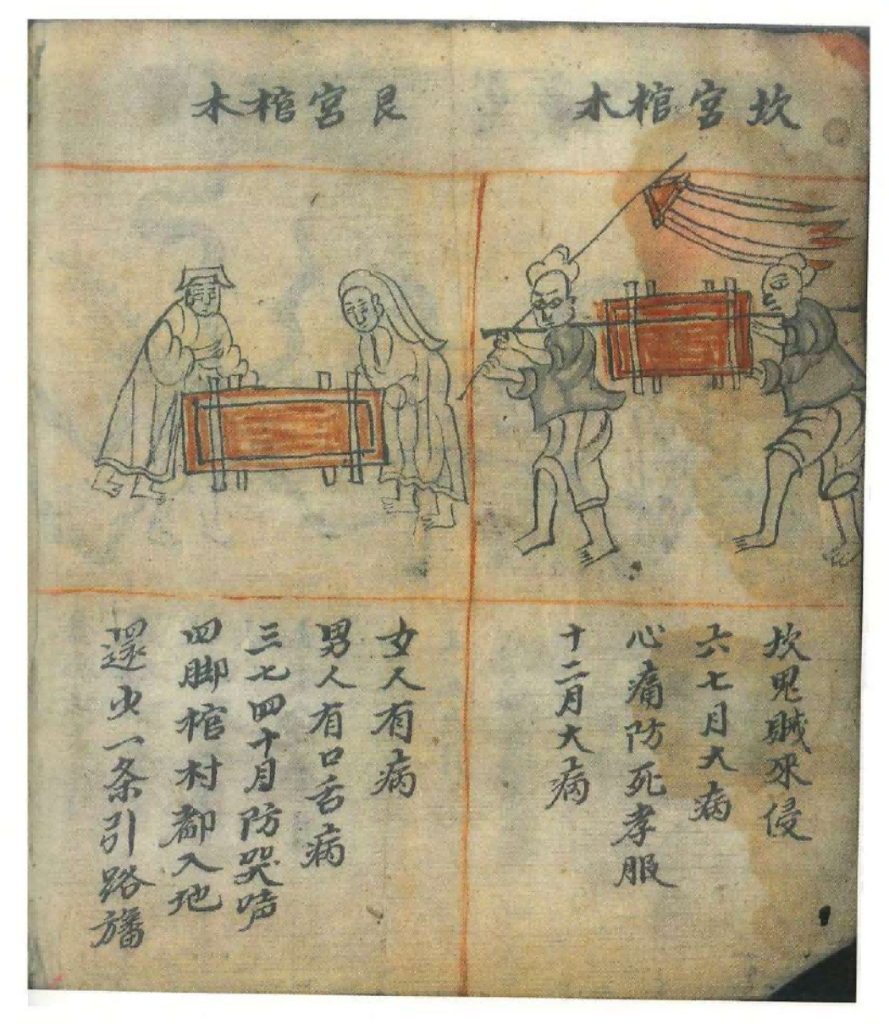 坎宫棺木
坎鬼賊来侵
六七月大病
心痛防死孝服
十二月大病
艮宫棺木
女人有病
男人有口舌病
三七四十月防哭声
四脚棺村都入地
還少一条引路旛